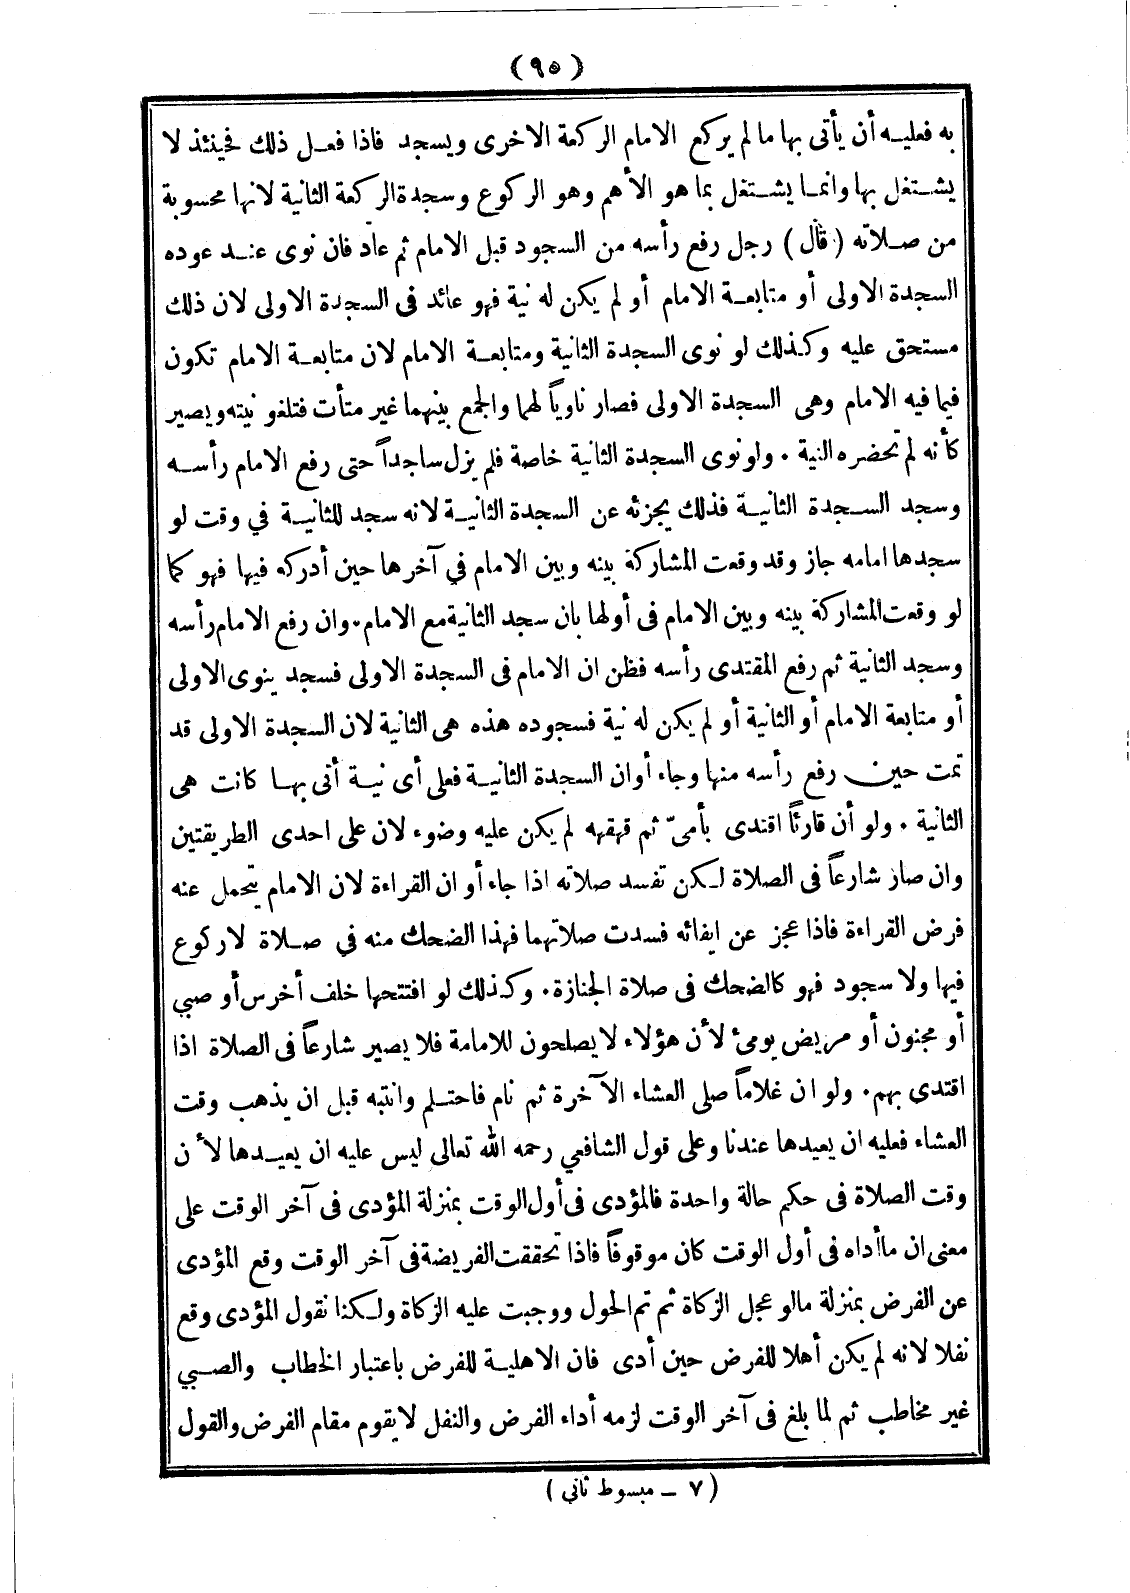 (٩٥)
به فعليه أن يأتى بها ما لم يركع الامام الركعة الاخرى ويسجد فاذا فعل ذلك فحينئذ لا
يشتغل بها وانما يشتغل بما هو الأهم وهو الركوع وسجدة الركعة الثانية لانها محسوبة
من صلاته (قال) رجل رفع رأسه من السجود قبل الامام ثم عاد فان نوى عند عوده
السجدة الاولى أو متابعة الامام أو لم يكن له نية فهو عائد فى السجدة الاولى لان ذلك
مستحق عليه وكذلك لو نوى السجدة الثانية ومتابعة الامام لان متابعة الامام تكون
فيما فيه الامام وهى السجدة الاولى فصار ناوياً لهما والجمع بينهما غير متأت فتلغو نيته ويصير
كأنه لم تحضره النية . ولو نوى السجدة الثانية خاصة فلم يزل ساجداً حتى رفع الامام رأسه
وسجد السجدة الثانية فذلك يجزئه عن السجدة الثانية لانه سجد للثانية في وقت لو
سجدها امامه جاز وقد وقعت المشاركة بينه وبين الامام في آخرها حين أدركه فيها فهو كما
لو وقعت المشاركة بينه وبين الامام فى أولها بان سجد الثانية مع الامام . وان رفع الامام رأسه
وسجد الثانية ثم رفع المقتدى رأسه فظن ان الامام فى السجدة الاولى فسجد ينوى الاولى
أو متابعة الامام أو الثانية أو لم يكن له نية فسجوده هذه هى الثانية لان السجدة الاولى قد
تمت حين رفع رأسه منها وجاء أوان السجدة الثانية فعلى أى نية أتى بها كانت هى
الثانية . ولو أن قارئاً اقتدى بأمىّ ثم قهقهه لم يكن عليه وضوء لان على احدى الطريقتين
وان صار شارعاً فى الصلاة لكن تفسد صلاته اذا جاء أو ان القراءة لان الامام يتحمل عنه
فرض القراءة فاذا عجز عن ايفائه فسدت صلاتهما فهذا الضحك منه في صلاة لا ركوع
فيها ولا سجود فهو كالضحك فى صلاة الجنازة . وكذلك لو افتتحها خلف أخرس أو صبي
أو مجنون أو مريض يومئ لأن هؤلاء لا يصلحون للامامة فلا يصير شارعاً فى الصلاة اذا
اقتدى بهم . ولو ان غلاماً صلى العشاء الآخرة ثم نام فاحتلم وانتبه قبل ان يذهب وقت
العشاء فعليه ان يعيدها عندنا وعلى قول الشافعي رحمه الله تعالى ليس عليه ان يعيدها لأن
وقت الصلاة فى حكم حالة واحدة فالمؤدى فى أول الوقت بمنزلة المؤدى فى آخر الوقت على
معنى ان ما أداه فى أول الوقت كان موقوفاً فاذا تحققت الفريضة فى آخر الوقت وقع المؤدى
عن الفرض بمنزلة ما لو عجل الزكاة ثم تم الحول ووجبت عليه الزكاة ولكنا نقول المؤدى وقع
نفلا لانه لم يكن أهلا للفرض حين أدى فان الاهلية للفرض باعتبار الخطاب والصبي
غير مخاطب ثم لما بلغ فى آخر الوقت لزمه أداء الفرض والنفل لا يقوم مقام الفرض والقول
(٧ ــ مبسوط ثانى)